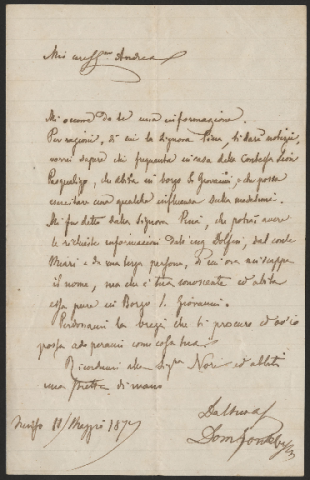 Mio caress.mo Andrea
Mi occorre da te una informazione.
Per ragioni, di cui la Signora Pina, ti darà notizia,
vorrei sapere chi frequenta in casa della Contessa
Pasqualigo, che abita in borgo S. Giovanni, e che possa
esercitare una qualche influenza sulla medesima.
Mi fu detto dalla Signora Pina, che potrai avere
le richieste informazioni dal Dolfin, dal conte
Miari e da una terza persona, di cui ora mi scappa
il nome, ma che è tua conoscente ed abita
essa pure in Borgo S. Giovanni.
Perdonami la briga che ti procuro ed io
possa adoperarmi cosa tua.
Ricordami alla Sig.ra Nori ed abbiti
una stretta di mano
Dal tuo
Maggio 187